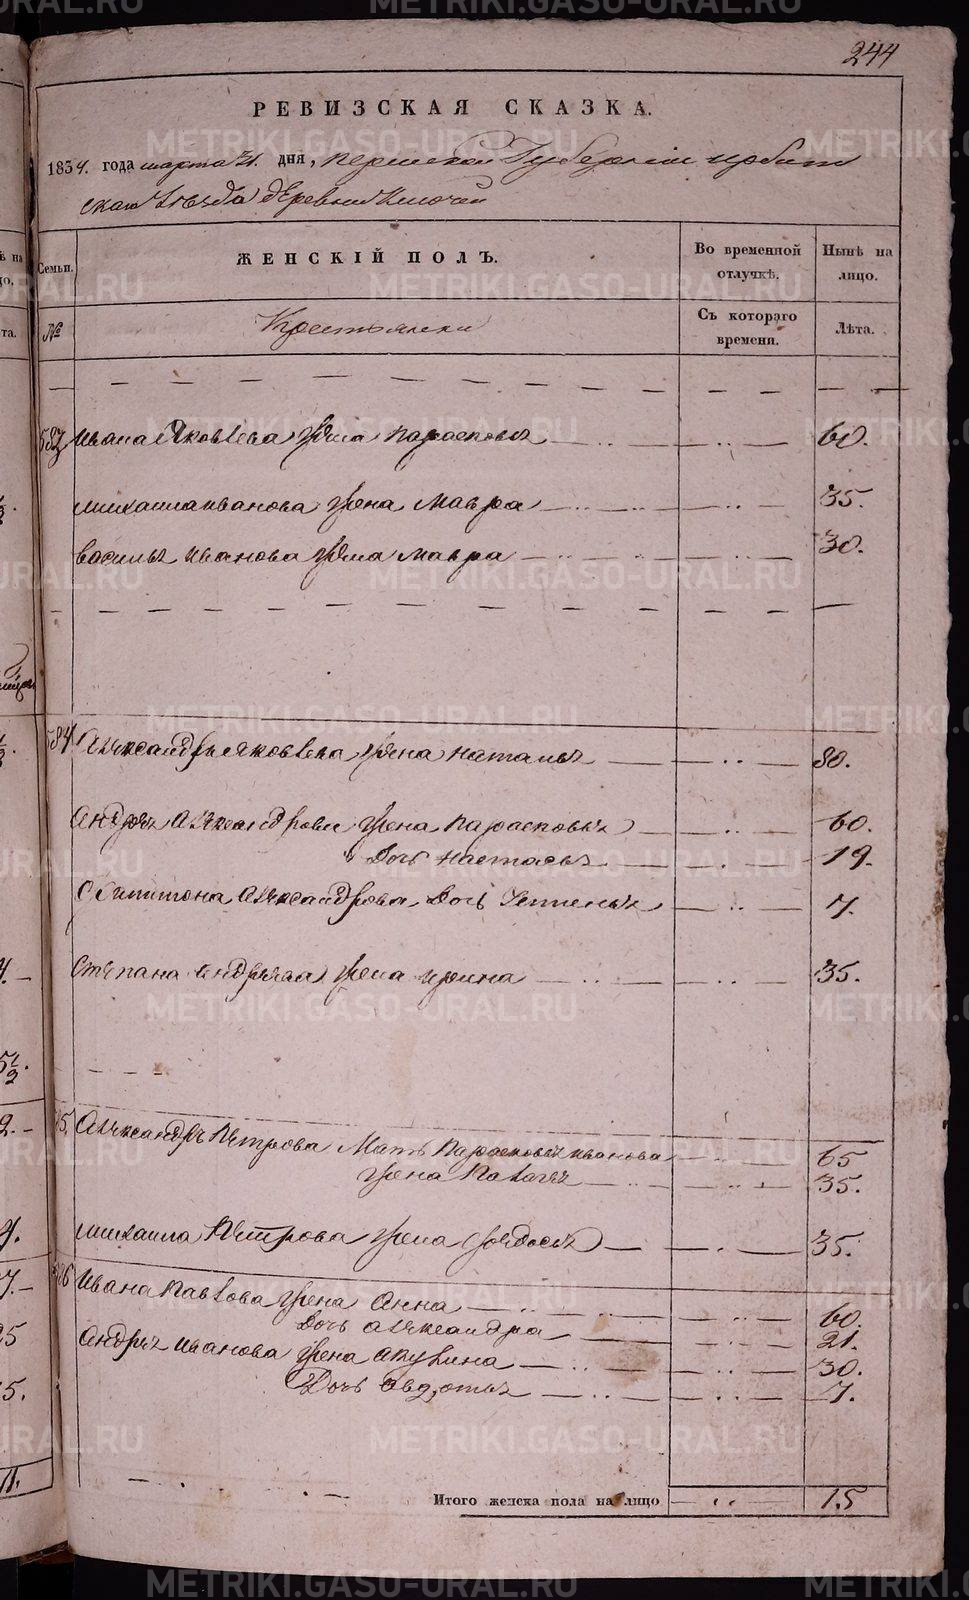 244
РЕВИЗСКАЯ СКАЗКА.
1834. года марта 31. дня, Пермской Губернии Ирбит
скаго Уѣзда деревни Ключей
Семьи. ЖЕНСКІЙ ПОЛЪ. Во временной отлучкѣ. Нынѣ на лицо.
№ Крестьянски Съ котораго времени. Лѣта.
583 Ивана Яковлева жена Парасковья 60.
Михаила Иванова жена Мавра 35.
Василья Иванова жена Мавра 30.
584 Александра Яковлева жена Наталья 80.
Андрея Александрова жена Парасковья 60.
Дочь Настасья 19.
Александрова Дочь 7.
Степана Андреева жена Ирина 35.
85. Александра Петрова Мать Парасковья Иванова 65
жена 35.
Михаила Петрова жена Федосья 35.
86 Ивана Павлова жена Анна 60.
Дочь Александра 21.
Андрея Иванова жена Акулина 30.
Дочь Авдотья 7.
Итого женска пола на лицо 15
METRIKI.GASO-URAL.RU